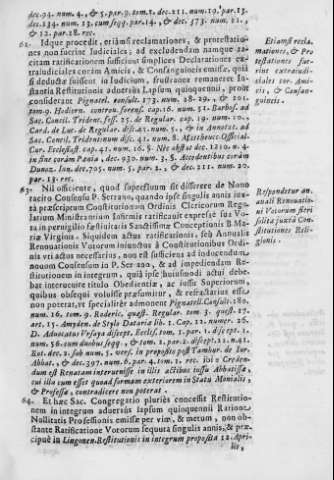 dec. 94. num. 4., & 5. par. 9. tom. 1. dec. 211. num. 19. par. 13.
dec. 234. num. 13. cum seqq. par. 14., & dec. 573. num. 21.,
& 22. par. 18. rec.
62. Idque procedit, etiamsi reclamationes, & protestatio-
nes non fuerint Judiciales; ad excludendam namque ta-
citam ratificationem sufficiunt simplices Declarationes ex-
trajudiciales coram Amicis, & Consanguineis emissæ, quia
si deductæ fuissent in Judicium, frustranee remaneret In-
stantia Restitutionis adversus Lapsum quinquennii, prout
considerant Pignatel. consult. 173. num. 28. 29., & 201.
tom. 9. Hodiern. controv. forens. cap. 16. num. 51. Barbos. ad
Sac. Concil. Trident. sess. 25. de Regular. cap. 19. num. 10.,
Card. de Luc. de Regular. disc. 41. num. 5., & in Annotat. ad
Sac. Concil. Tridentinum disc. 41. num. 8. Mattheucc. Official.
Cur. Ecclesiast. cap. 41. num. 16. §. Nec obstat dec. 1210. n. 4.
in fine coram Penia, dec. 930. num. 3. §. Accedentibus coram
Dunoz. Jun. dec. 705. num. 5. par. 1., & dec. 211. num. 20.
par. 13. rec.
Etiamsi recla-
mationes, & Pro
testationes fue-
rint extraudi-
ciales cor. Ami-
cis, & Consan-
guineis.
63. Nil officiente, quod superfluum sit disserere de Nono
tacito Consensu P. Serrano, quando ipse singulis annis jux-
ta præscriptum Constitutionum Ordinis Clericorum Regu-
larium Ministrantium Infirmis ratificavit expresse sua Vo-
ta in pervigilio fæstivitatis Sanctissimæ Conceptionis B. Ma-
riæ Virginis. Siquidem actus ratificationis, seu Annualis
Renovationis Votorum injunctus à Constitutionibus Ordi-
nis vti actus necessarius, non est sufficiens ad inducendum
nouum Consensum in P. Serrano, & ad impediendam Re-
stitutionem in integrum, quià ipse huiusmodi actui debe-
bat interuenire titulo Obedientiæ, ac jussu Superiorum,
quibus obsequi voluisse præsumitur, & refractarius esse
non poterat, vt specialitèr admonent Pignatell. Consult. 180.
num. 16. tom. 9. Roderic. quæst. Regular. tom. 3. quæst. 17.
art. 15. Amyden. de Stylo Datariæ lib. 1. Cap. 12. numer. 26.
D. Advocatus Vrsaya discept. Ecclesi. tom. 1. par. 1. discept. 1.
num. 56. cum duobus seqq., & tom. 1. par. 2. discept. 21. n. 41.
Rot. dec. 2. sub num. 5. vers. in proposito post Tambur. de Iur.
Abbat., & dec. 397. num. 8. par. 4. tom. 2. rec. ibi = Creden-
dum est Renatam interuenisse in illis actibus iussu Abbatissæ,
cui illa cum esset quoad formam exteriorem in Statu Monialis,
& Professa, contradicere non poterat.
Respondetur an
anuali Renouatio-
ni Votorum fieri
solita juxtà Con-
stitutiones Reli-
gionis.
64. Et hæc Sac. Congregatio pluriès concessit Restitutio-
nem in integrum aduersùs lapsum quinquennii Ratione
Nullitatis Professionis emissæ per vim, & metum, non ob-
stante Ratificatione Votorum sequuta singulis annis, & præ-
cipuè in Lingonen. Restitutionis in integrum proposita 12. Apri-
lis,